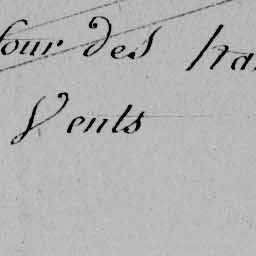 four des ha
Vents